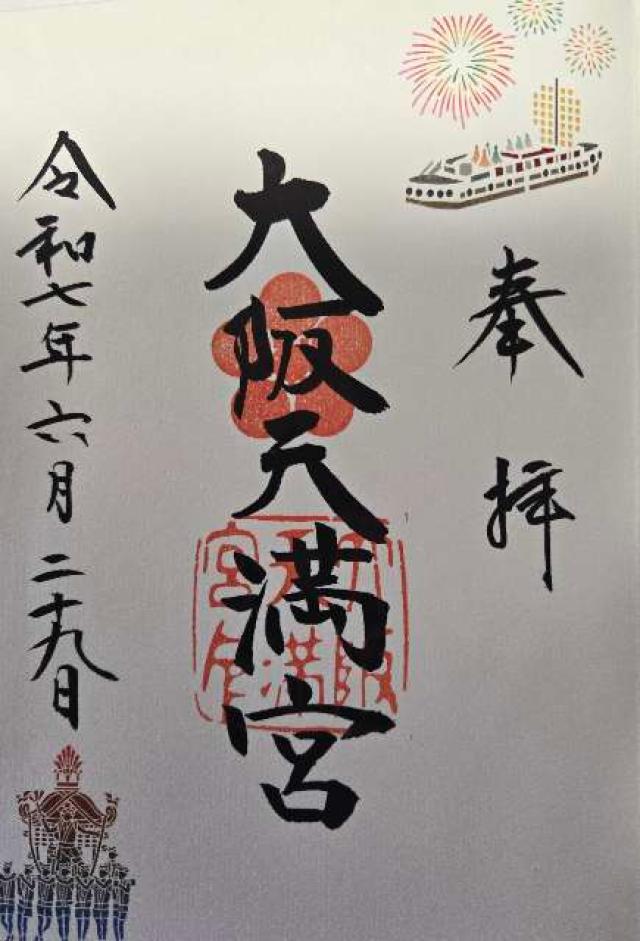 奉拝
大阪天満宮
令和七年六月二十九日